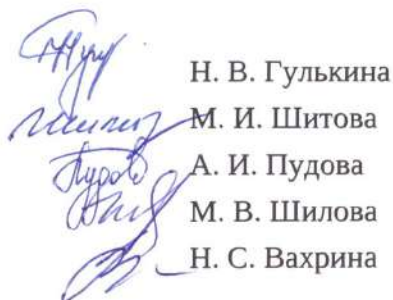 Н. В. Гулькина
М. И. Шитова
А. И. Пудова
М. В. Шилова
Н. С. Вахрина